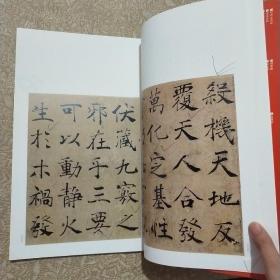 殺機天地反
覆天人合發
萬化定基性
伏藏九竅之
邪在乎三要
可以動静火
生於木禍發